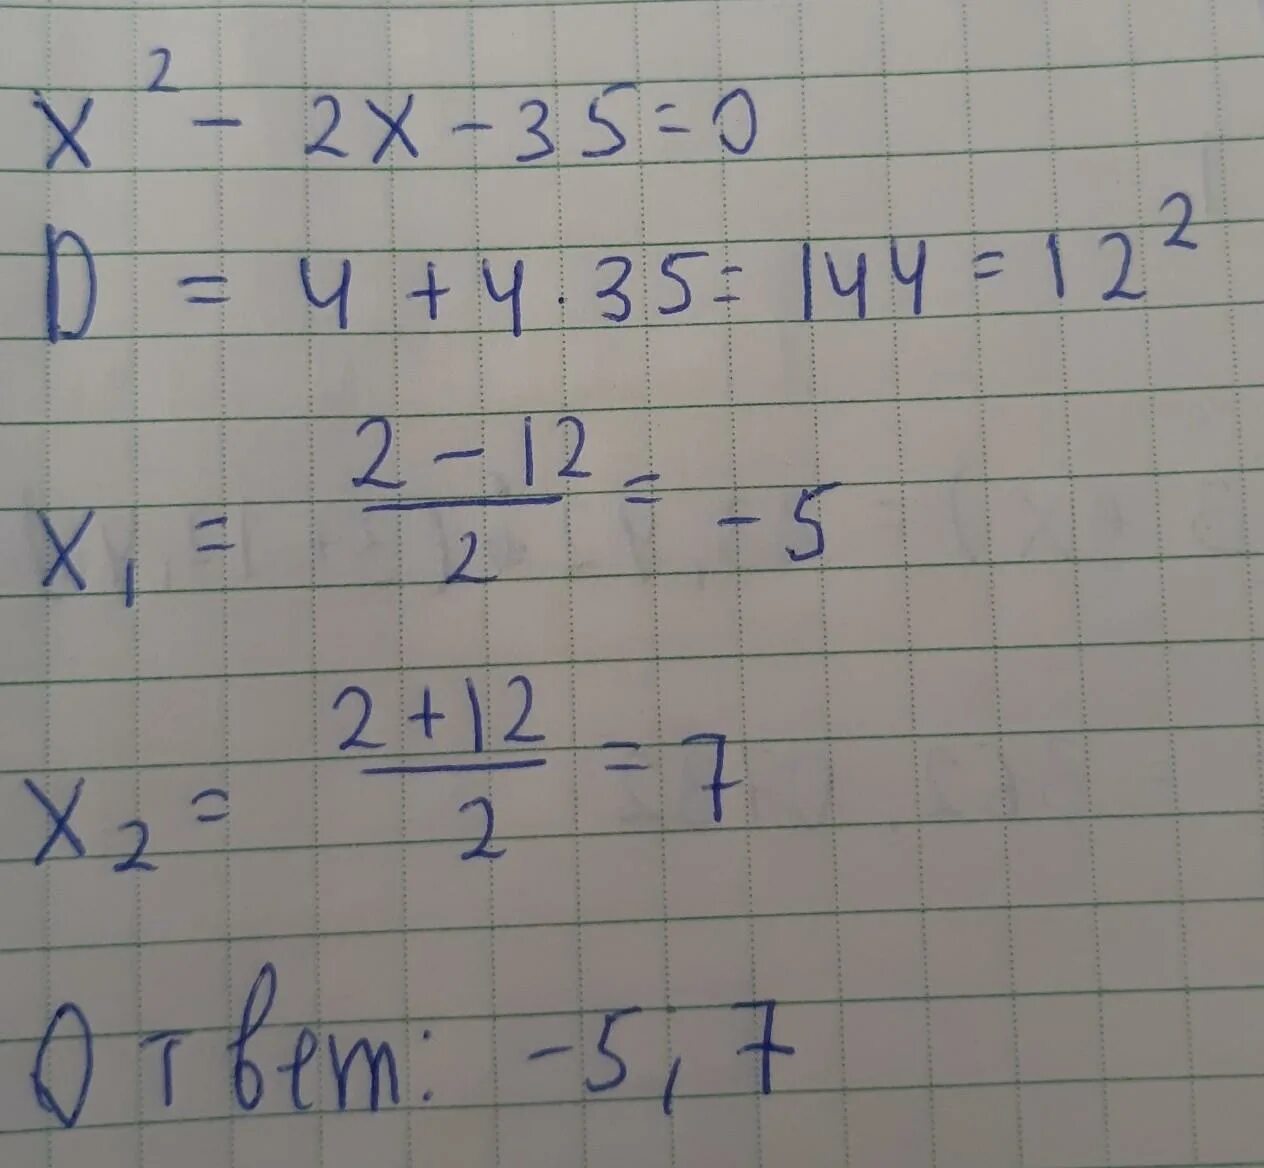 x² - 2x - 35 = 0
D = 4 + 4 · 35 = 144 = 12²
x₁ = (2 - 12)/2 = -5
x₂ = (2 + 12)/2 = 7
Ответ: -5, 7